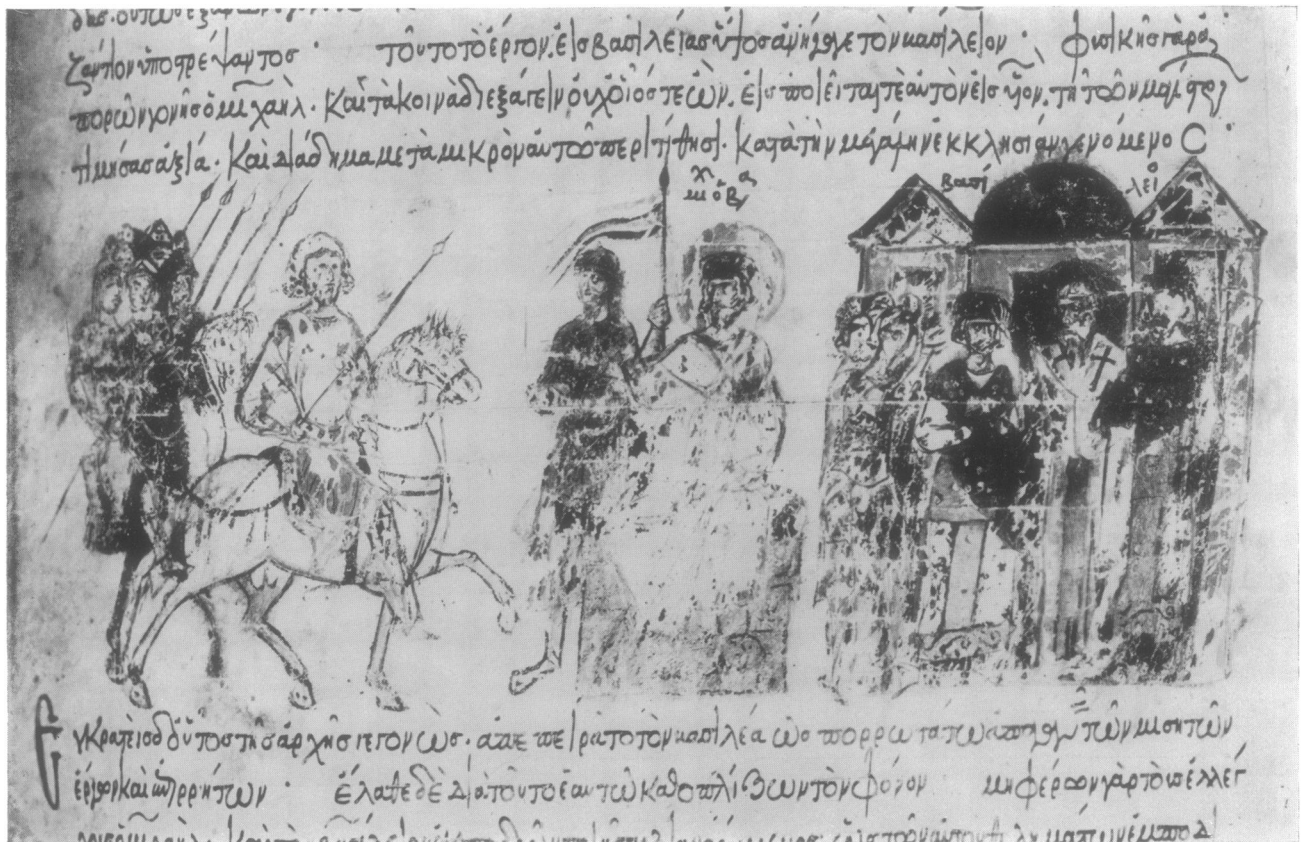 ζάντιον ὑποστρέψαντος · τοῦτο τὸ ἔργον, εἰς βασιλείας ὕψος ἀνήγαγε τὸν βασίλειον · φυσικῆς γὰρ ἀ
πορῶν γονῆς ὁ μιχαήλ · καὶ τὰ κοινὰ διεξάγειν οὐχ οἷός τε ὤν, εἰσποιεῖται τὲ αὐτὸν εἰς υἱόν, τῇ τῶν μαγίστρ
τιμήσας ἀξία · καὶ διάδημα μετὰ μικρὸν αὐτῶ περιτίθησι · κατὰ τὴν μεγάλην ἐκκλησίαν γενόμενος ·
μι χ ὁ βας
βασί λειο
Εγκρατεὶς δ' οὗτος τῆς ἀρχῆς γεγονὼς · ἀπεπειρᾶτο τὸν βασιλέα ὡς πορρωτάτω ἀπάγειν τῶν μισητῶν
ἔργων καὶ ἀπορρήτων · ἔλαθε δὲ διὰ τοῦτο ἑαυτῶ καθοπλίζων τὸν φθόνον μὴ φέρων γὰρ τοὺς ἐλέγ